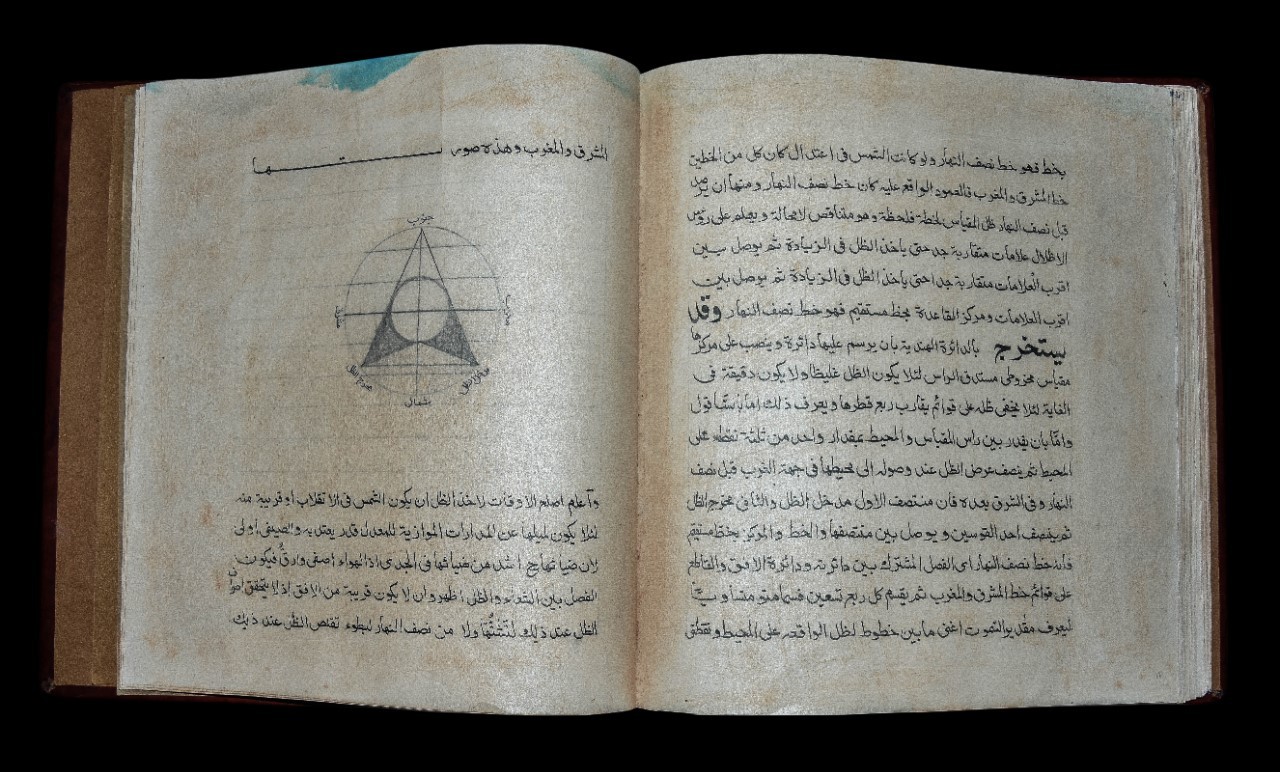 بخط فهو خط نصف النهار ولو كانت الشمس فى اعتدال كان كل من الخطين
خط المشرق والمغرب فالعمود الواقع عليه كان خط نصف النهار ومنها ان يرصد
قبل نصف النهار ظل المقياس لحظة فلحظة وهو متناقص لامحالة ويعلم على رؤس
الاظلال علامات متقاربة جد حتى ياخذ الظل فى الزيادة ثم يوصل بين
اقرب العلامات متقاربة جدا حتى ياخذ الظل فى الزيادة ثم يوصل بين
اقرب العلامات ومركز القاعدة بخط مستقيم فهو خط نصف النهار وقد
يستخرج بالدائرة الهندية بان يرسم عليها دائرة وينصب على مركزها
مقياس مخروطى مستدق الراس لئلا يكون الظل غليظا ولا يكون دقيقة فى
الغاية لئلا يخفى ظله على قوائم يقارب ربع قطرها ويعرف ذلك اما بالشاقول
واما بان يقدر بين راس المقياس والمحيط بمقدار واحد من ثلثة نقطه على
المحيط ثم ينصف عرض الظل عند وصوله الى محيطها فى جهة الغرب قبل نصف
النهار وفى الشرق بعده فان منتصف الاول مدخل الظل والثانى مخرج الظل
ثم ينصف احد القوسين ويوصل بين منتصفها والخط والمركز بخط مستقيم
فانه خط نصف النهار اى الفصل المشترك بين دائرته ودائرة الافق والقاطع
على قوائم خط المشرق والمغرب ثم يقسم كل ربع تسعين قسما متساوية
ليعرف مقدير السموت اعنى مابين خطوط لظل الواقعه على المحيط ونقطتى
المشرق والمغرب وهذه صورتها
جنوب
مدخل الظل
مخرج الظل
شمال
وأعلم اصلح الاوقات لاخذ الظل ان يكون الشمس فى الانقلاب او قريبة منه
لئلا يكون لميلها عن المدارات الموازية للمعدل قدر يعتد به والصيفى اولى
لان ضيائها ح اشد من ضيائها فى الجدى اذ الهواء اصفى وارق فيكون
الفصل بين الشعاع والظل اظهر وان لا يكون قريبة من الافق اذ لا يتحقق اطراف
الظل عند ذلك لتشتتها ولا من نصف النهار لبطوء تقلص الظل عند ذلك